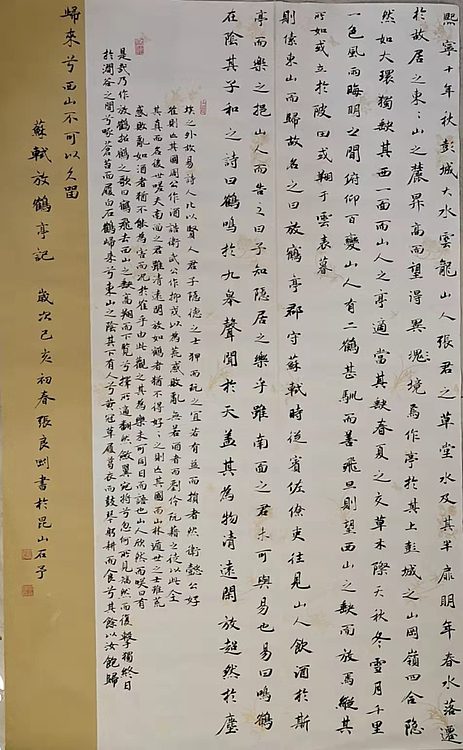 熙寧十年秋彭城大水雲龍山人張君之草堂水及其半扉明年春水落遷
於故居之東:山之麓昇高而望得異境焉作亭於其上彭城之山岡嶺四合隱
然如大環獨缺其西一面而山人之亭適當其缺春夏之交草木際天秋冬雪月千里
一色風雨晦明之間俯仰百變山人有二鶴甚馴而善飛旦則望西山之缺而放焉縱其
所如或立於陂田或翔于雲表暮
則傃東山而歸故名之曰放鶴亭郡守蘇軾時從賓佐僚吏往見山人飲酒於斯
亭而樂之挹山人而告之曰子知隱居之樂乎雖南面之君未可與易也易曰鳴鶴
在陰其子和之詩曰鶴鳴於九皋聲聞於天蓋其為物清遠閑放超然於塵
埃之外故易詩人比以賢人君子隱德之士狎而玩之宜若有益而損者然衛懿公好
隹則亡其國周公作酒誥衛武公作抑戒以為荒惑敗亂無若酒者而劉伶阮籍之徒以此全
其真而名後世嗟夫南面之君雖清遠閑放如鶴者猶不得好:之則亡其國而山林遁世之士雖荒
惑敗亂如酒者猶不能為害而況於隹乎由此觀之其為樂未可同日而語也山人欣然而咲曰有
是哉乃作放鶴招鶴之歌曰鶴飛去兮西山之缺高翔而下覽兮擇所適翻然斂翼宛將集兮忽何所見矯然而復擊獨終日
於澗谷之間兮啄蒼苔而履白石鶴歸來兮東山之陰其下有人兮黃冠草履葛衣而鼓琴躬耕而食兮其餘以汝飽歸
歸來兮西山不可以久留
蘇軾放鶴亭記 歲次己亥初春張良書於昆山石予